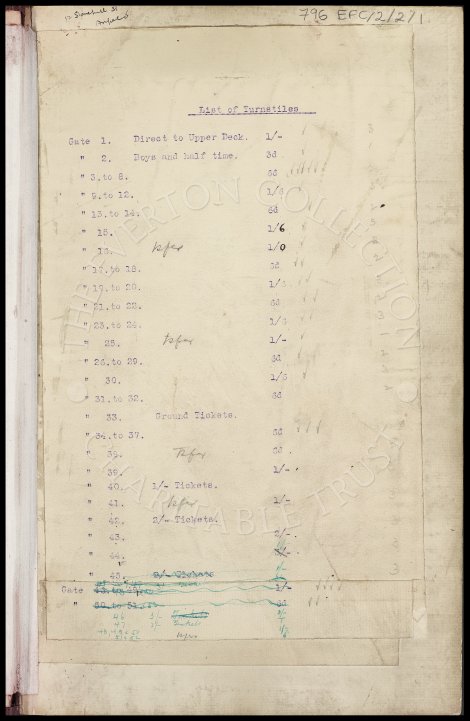 796 EFC/2/2/1
List of Turnstiles
Gate 1. Direct to Upper Deck. 1/-
" 2. Boys and half time. 3d
" 3.to 8. 6d
" 9.to 12. 1/6
" 13.to 14. 6d
" 15. 1/6
" 16. tsfer 1/0
" 17.to 18. 6d
" 19.to 20. 1/6
" 21.to 22. 6d
" 23.to 24. 1/6
" 25. tsfer 1/-
" 26.to 29. 6d
" 30. 1/6
" 31.to 32. 6d
" 33. Ground Tickets.
" 34.to 37. 6d
" 39. tsfer 6d
" 39. 1/-
" 40. 1/- Tickets.
" 41. tsfer 1/-
" 42. 2/- Tickets.
" 43. 2/-
" 44. 2/-
" 45. 2/- Tickets
Gate 1/-
" 6d
46
47
tsfer
THE EVERTON COLLECTION
CHARITABLE TRUST